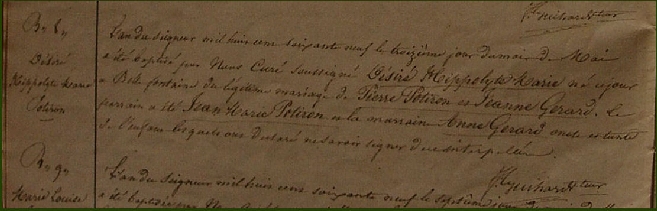 B. 5.
Désiré
Hippolyte Marie
Potiron
L'an du seigneur mil huit cent soixante neuf le treizième jour du mois de Mai
a été baptisé par Nous Curé soussigné Désiré Hippolyte Marie né ce jour
a Belle fontaine du légitime mariage de Pierre Potiron et Jeanne Gérard. Le
parrain a été Jean Marie Potiron et la marraine Anne Gerard oncle et tante
de l'enfant lesquels ont déclaré ne savoir signer de ce interpellés.
Marie Louise
L'an du seigneur mil huit cent soixante neuf le
a été baptisée par